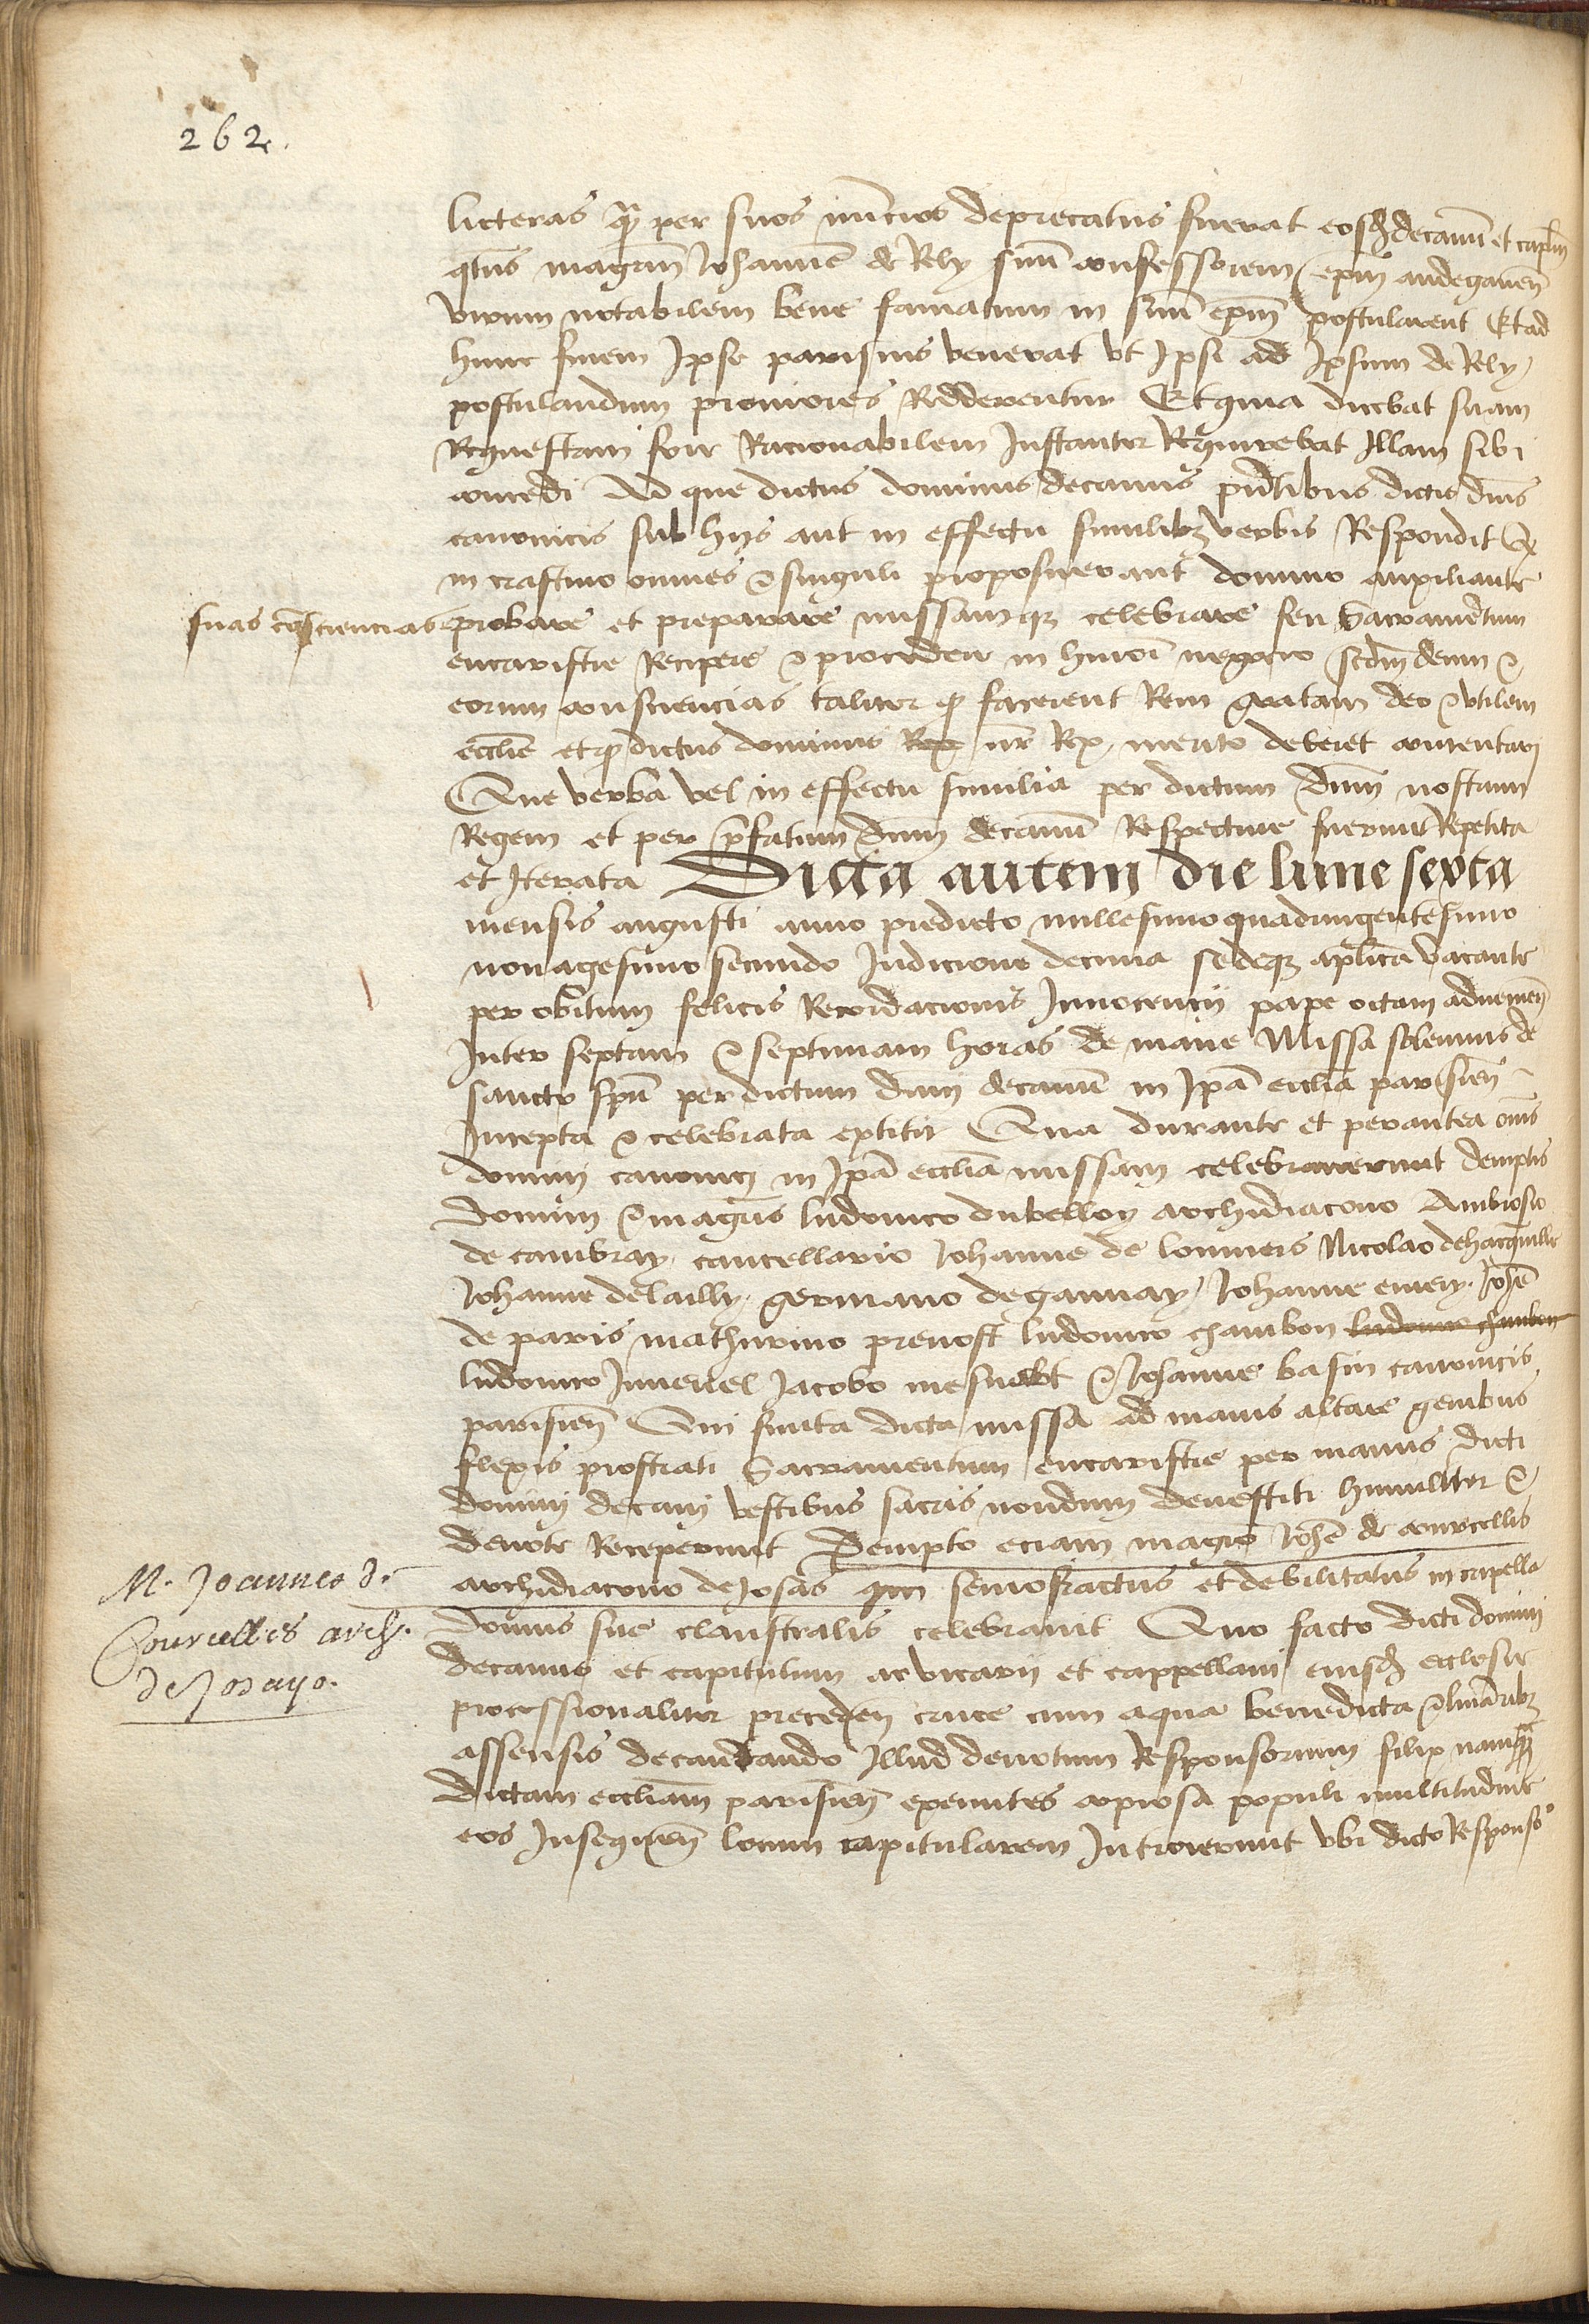 262.
licteras q̄ per suos nūcios deprecatus fuerat eosdē decanū et caplm
qtūs magrm Johannē de Rely suū confessorem epm andegaueñ
virum notabilem bene famatum in suū epm postularent Et ad
hunc finem Ipse parisius venerat vt Ipsi ad Ipsum de Rely
postulandum proniores Redderentur Et quia dicebat suam
Requestam fore Racionabilem Instanter Requirebat Illam sibi
concedi Ad que dictus dominus decanus pntibus dictis dnis
canonicis sub hijs aut in effectu similibz verbis Respondit q
in crastino omnes & singuli proposuerant domino auxiliante
suas cōsciencias probare et preparare missamqz celebrare seu Sacramentum
eucaristie Recipere & procedere in huiōi negocio scdm deum &
eorum consciencias taliter q facerent Rem gratam deo & vtilem
ecclie et q dictus dominus Rex nr Rex merito deberet contentari
Que verba vel in effectu similia per dictum dnm nostrum
Regem et per prefatum dnm decanū Respectiue fuerunt Repetita
et Iterata Dicta autem die lune sexta
mensis augusti anno predicto millesimo quadringentesimo
nonagesimo secundo Indicione decima sedeqz aplica vacante
per obitum felicis Recordacionis Innocencij pape octaui adueniēn
Inter sextam & septimam horas de mane Missa solemnis de
sancto spū per dictum dnm decanū in Ipā ecclia parisieñ
Incepta & celebrata extitit Qua durante et per antea om̄s
domini canonici in Ipā ecclia missam celebrauerunt demptis
dominis & magris ludouico du belloy archidiacono Ambrosio
de cambray cancellario Johanne de louuiers Nicolao de hacqueuille
Johanne de lailly germano de gannay Johanne emery Johē
de paris mathurino preuost ludouico chambon ludouico chambon
ludouico Iuuenel Jacobo mesnart & Johanne basin canonicis
parisieñ Qui finita dicta missa ad maius altare genibus
flexis prostrati Sacramentum eucaristie per manus dicti
domini decani vestibus sacris nondum deuestiti humiliter &
deuote Receperunt Dempto eciam magro Johē de courcellis
archidiacono de Josas qui seniofractus et debilitatus in capella
domus sue claustralis celebrauit Quo facto dicti domini
decanus et capitulum ac vicarij et cappellani eiusdē ecclesie
processionaliter precedeñ cruce cum aqua benedicta & luiaribz
assensis decantando Illud deuotum Responsorium felix namqz
dictam eccliam parisieñ exeuntes copiosa populi multitudine
eos Insequeñ locum capitularem Introierunt vbi dicto Responso
M. Joannes de
Courcelles arch.
de Josayo.